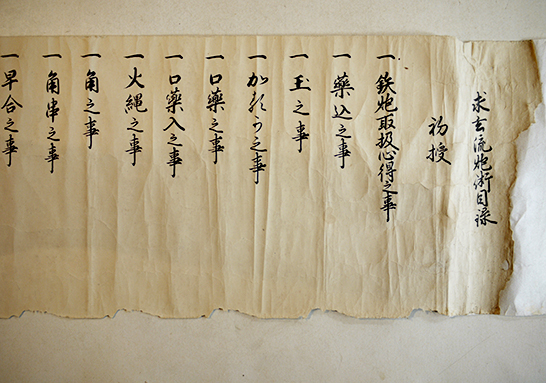 求玄流炮術目録
初授
一 鉄炮取扱心得之事
一 薬込之事
一 玉之事
一 加るう之事
一 口薬之事
一 口薬入之事
一 火縄之事
一 角之事
一 角串之事
一 早合之事